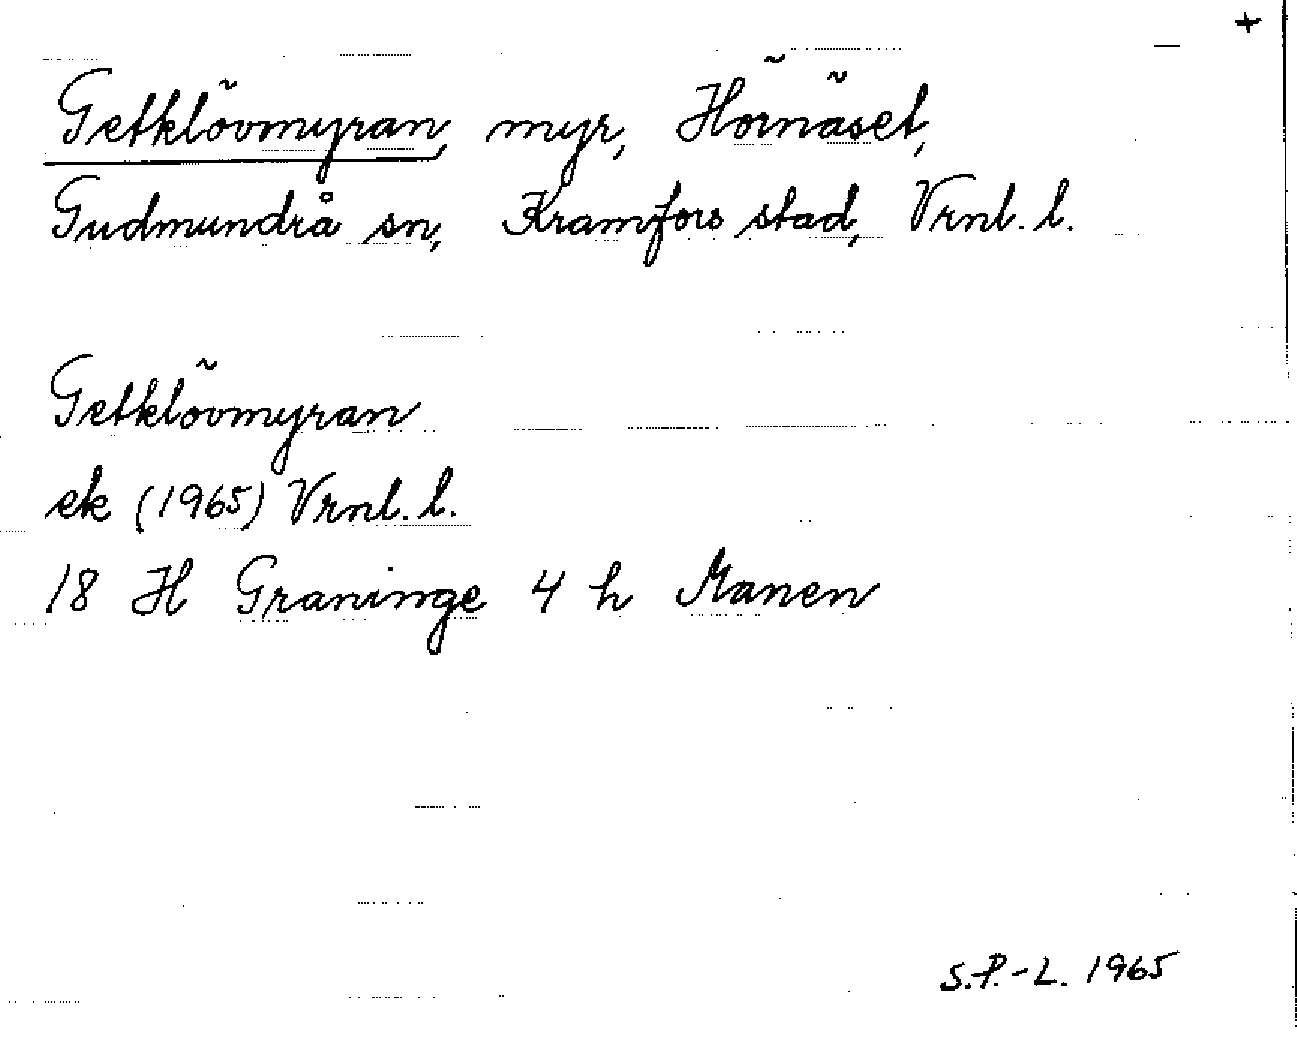 +
Getklövmyran, myr, Hörnäset,
Gudmundrå sn, Kramfors stad, Vrnl. l.
Getklövmyran
ek (1965) Vrnl. l.
18 H Graninge 4 h Manen
S.P.-L. 1965